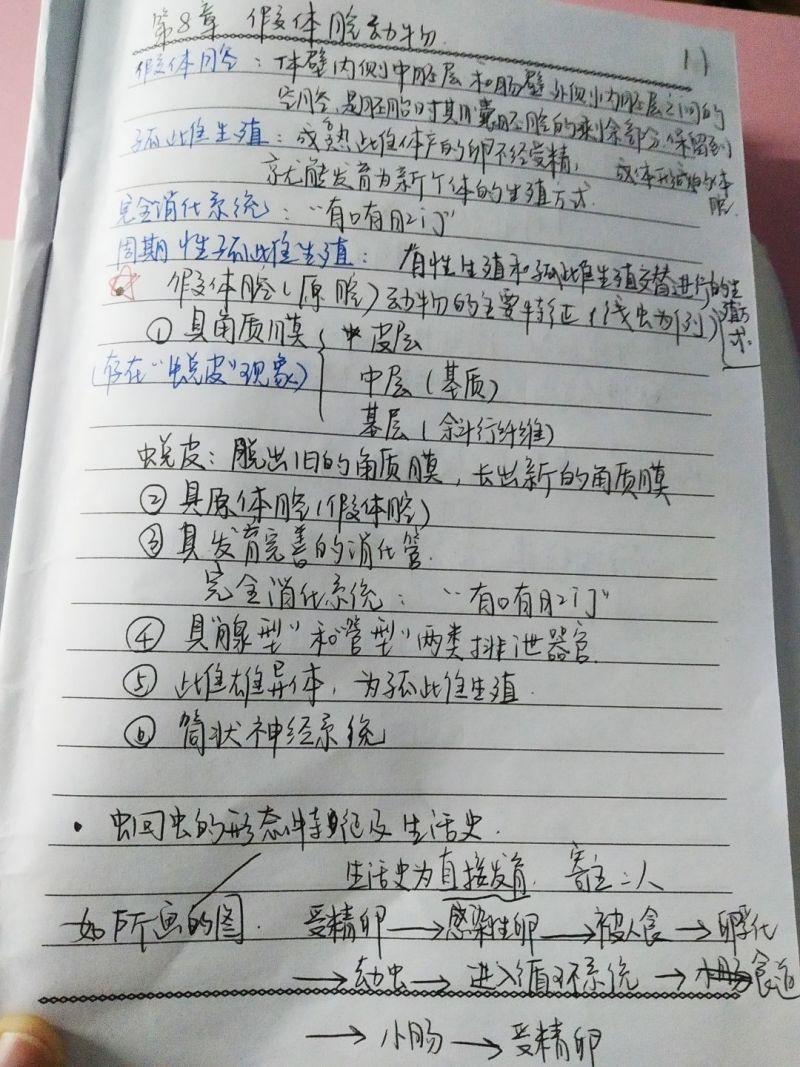 第8章 假体腔动物
11
假体腔：体壁内侧中胚层和肠壁外侧内胚层之间的
空腔，是胚胎时期囊胚腔的剩余部分保留到
成体形成的体腔
孤雌生殖：成熟雌体产的卵不经受精，
就能发育为新个体的生殖方式.
完全消化系统："有口有肛门"
周期性孤雌生殖：有性生殖和孤雌生殖交替进行的生殖方式.
假体腔(原腔)动物的主要特征(线虫为例)
①具角质膜 皮层
(存在"蜕皮"现象) 中层(基质)
基层(斜行纤维)
蜕皮：脱出旧的角质膜，长出新的角质膜
②具原体腔(假体腔)
③具发育完善的消化管.
完全消化系统："有口有肛门"
④具"腺型"和"管型"两类排泄器官
⑤雌雄异体，为孤雌生殖.
⑥筒状神经系统
·蛔虫的形态特征及生活史.
生活史为直接发育. 寄主：人
如所画的图. 受精卵→感染性卵→被人食→孵化
→幼虫→进入循环系统→食道
→小肠→受精卵